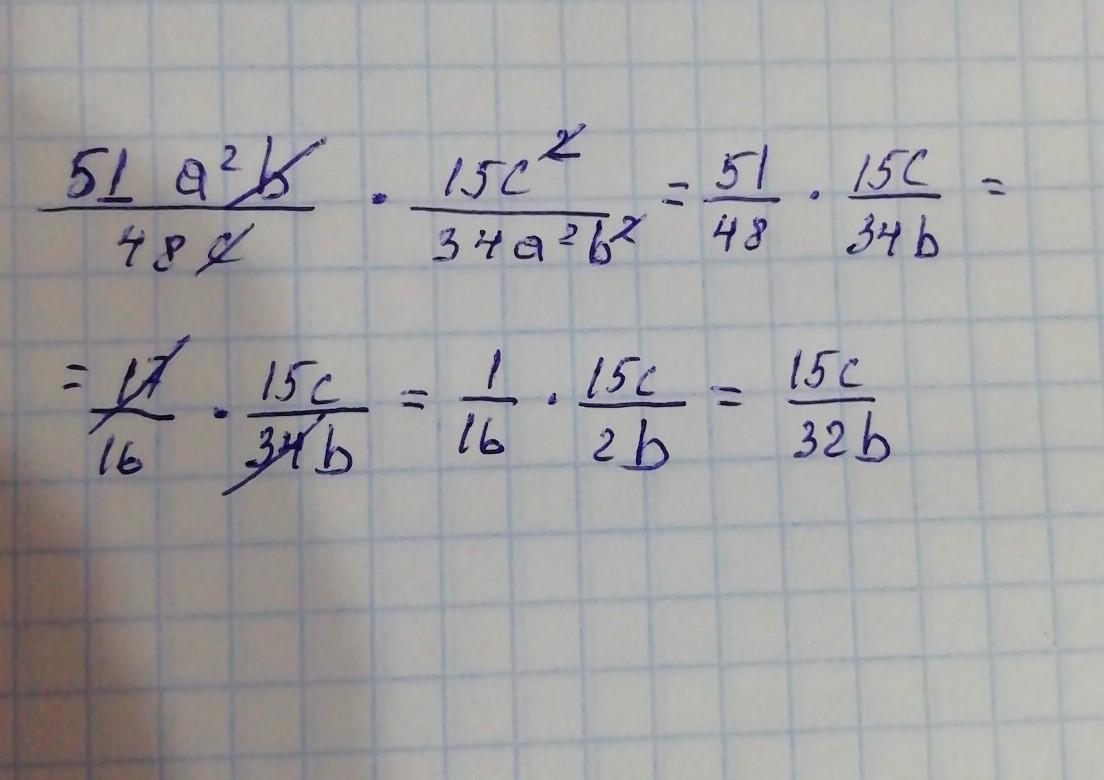 51 a² b / 48 c · 15c² / 34a²b² = 51 / 48 · 15c / 34b =
= 17 / 16 · 15c / 34b = 1 / 16 · 15c / 2b = 15c / 32b